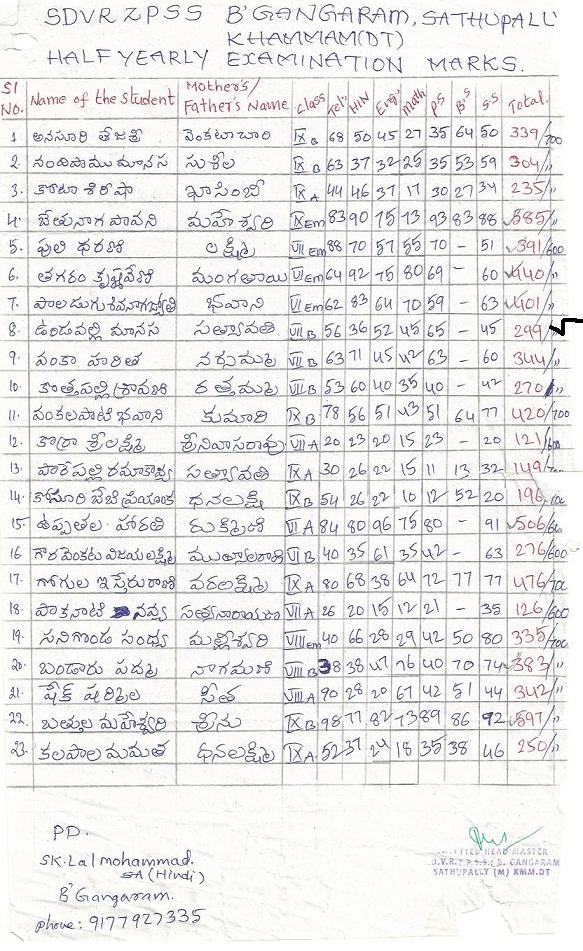 SDVR ZPSS B'GANGARAM, SATHUPALLY
KHAMMAM(DT)
HALF YEARLY EXAMINATION MARKS.
Sl NO. Name of the student Mother's/ Father's Name Class Tel HIN Eng Math P.S B.S S.S Total.
1 అనసూరి తేజశ్రీ వెంకటాచారి IX B 68 50 45 27 35 64 50 339/700
2. మానస సుశీల IX B 63 37 32 25 35 53 59 304/"
3. కోటా శిరీషా ఖాసింబీ IX A 44 46 37 17 30 27 34 235/"
4. బేతు నాగ పావని మహేశ్వరి IX Em 83 90 75 73 93 83 88 585/"
5. పులి ధరణి లక్ష్మి VII Em 88 70 57 55 70 - 51 391/600
6. తగరం కృష్ణవేణి మంగతాయి VI Em 64 92 75 80 69 - 60 440/"
7. పాలడుగు శివనాగజ్యోతి భవాని VI Em 62 83 64 70 59 - 63 401/"
8. ఉండవల్లి మానస సత్యావతి VII B 56 36 52 45 65 - 45 299
9. వంకా హరిత నర్సమ్మ VII B 63 71 45 42 63 - 60 344/"
10. కొత్తపల్లి శ్రావణి రత్తమ్మ VII B 53 60 40 35 40 - 42 270/"
11. వంకలపాటి భవాని కుమారి IX B 78 56 51 43 51 64 77 420/700
12. కొర్రా శ్రీలక్ష్మి శ్రీనివాసరావు VII A 20 23 20 15 23 - 20 121/600
13. పారేపల్లి సత్యావతి IX A 30 26 22 15 11 13 32 149/700
14. కోసూరి బేబి ప్రియాంక ధనలక్ష్మి IX B 54 26 22 10 12 52 20 196
15. ఉప్పతల హారతి రుక్మిణి VI A 84 80 96 75 80 - 91 506
16 గౌర వెంకట విజయలక్ష్మి VI B 40 35 61 35 42 - 63 276/600
17. గోగుల ఇస్తేరురాణి వరలక్ష్మి IX A 80 68 38 64 72 77 77 476/700
18. పాకనాటి నవ్య సత్యనారాయణ VII A 26 20 15 12 21 - 35 126/600
19. సనిగొండ సంధ్య మల్లీశ్వరి VIII Em 40 66 28 29 42 50 80 335/700
20. బండారు పద్మ నాగమణి VIII B 38 38 47 76 40 70 74 383/"
21. షేక్ షర్మిల సీత VIII A 90 28 20 67 42 51 44 342/"
22. బత్తుల మహేశ్వరి శ్రీను IX B 98 77 82 73 89 86 92 597/"
23. కలపాల మమత ధనలక్ష్మి IX A 52 37 24 18 35 38 46 250/"
PD.
SK. Lal mohammad.
SA (Hindi)
B'Gangaram.
phone: 9177927335
HEAD MASTER
D.V.R.Z.P.S.S.; B. GANGARAM
SATHUPALLY (M) KMM.DT